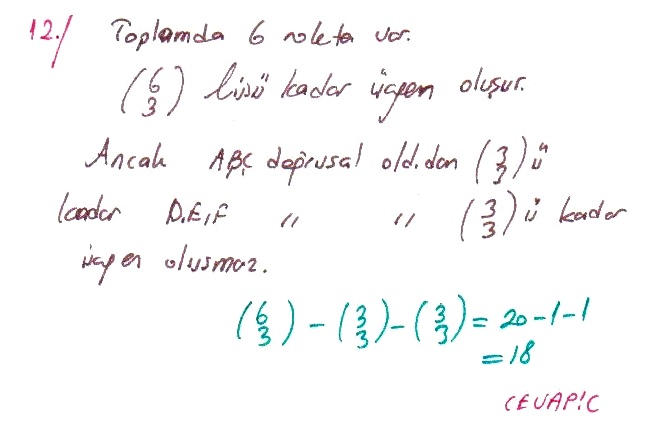 12./ Toplamda 6 nokta var.
(6 3) lüsü kadar üçgen oluşur.
Ancak ABC doğrusal old.dan (3 3) ü
kadar D,E,F " " (3 3) ü kadar
üçgen oluşmaz.
(6 3) - (3 3) - (3 3) = 20-1-1
= 18
CEVAP:C